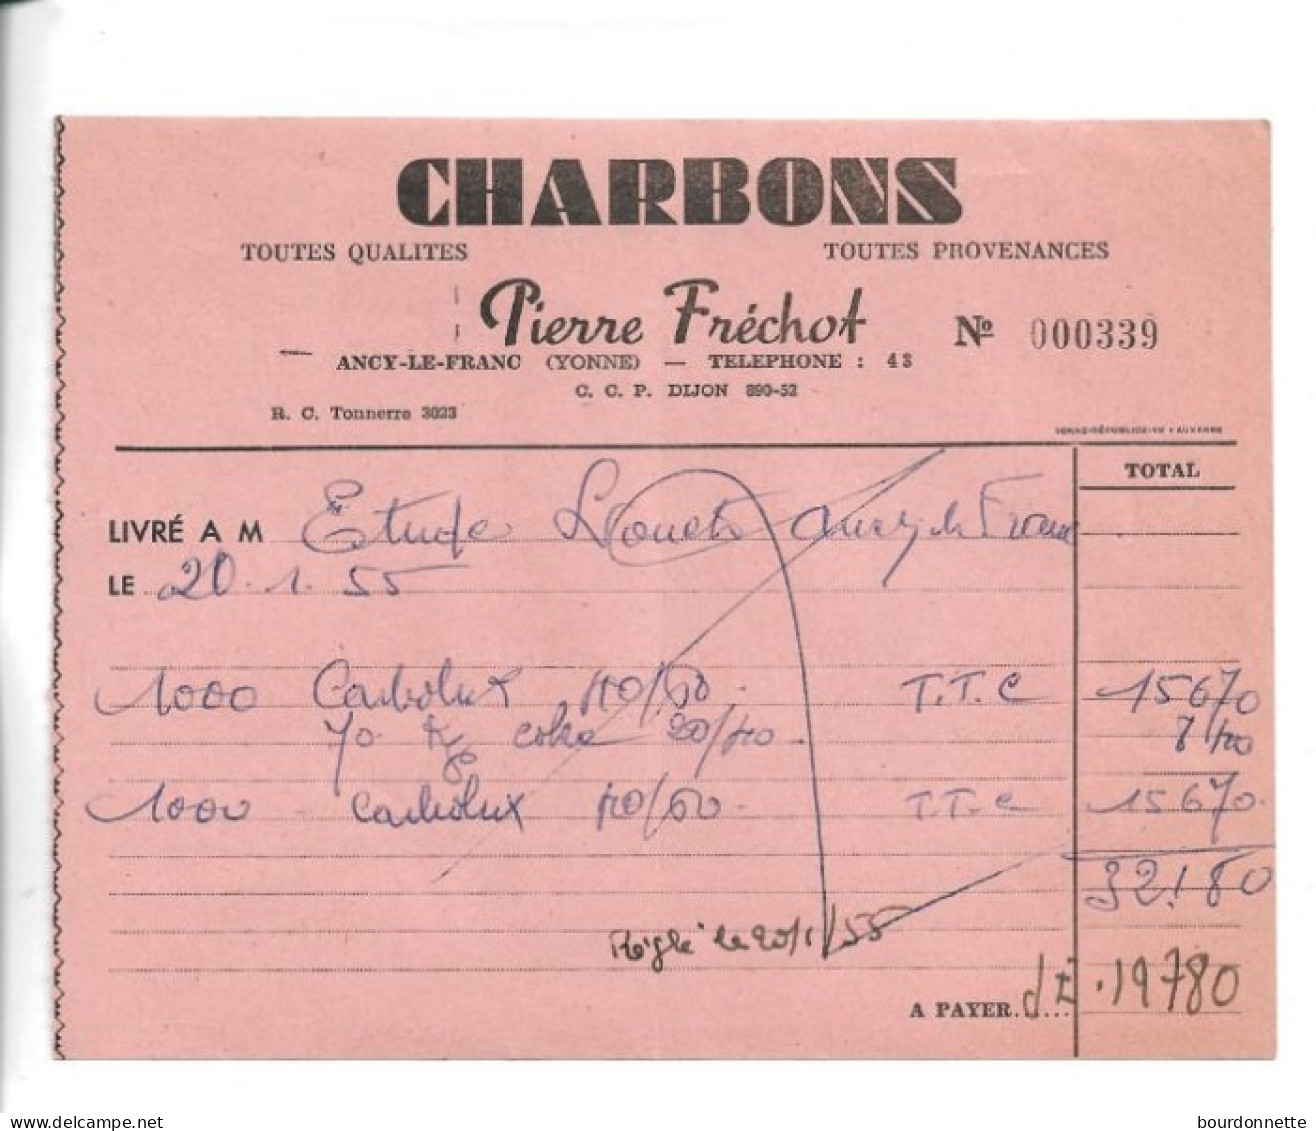 CHARBONS
TOUTES QUALITES TOUTES PROVENANCES
Pierre Fréchot Nº 000339
ANCY-LE-FRANC (YONNE) — TELEPHONE : 43
C. C. P. DIJON 890-52
R. C. Tonnerre 3023
YONNE-RÉPUBLICAINE - AUXERRE
TOTAL
LIVRÉ A M Etude Ancy le Franc
LE 20.1.55
1000 Carbolux 40/60 T.T.C 15670
70 Kg coke 20/40 840
1000 carbolux 40/60 T.T.C 15670
32180
Réglé le 20/1/55
A PAYER 19780
bourdonnette